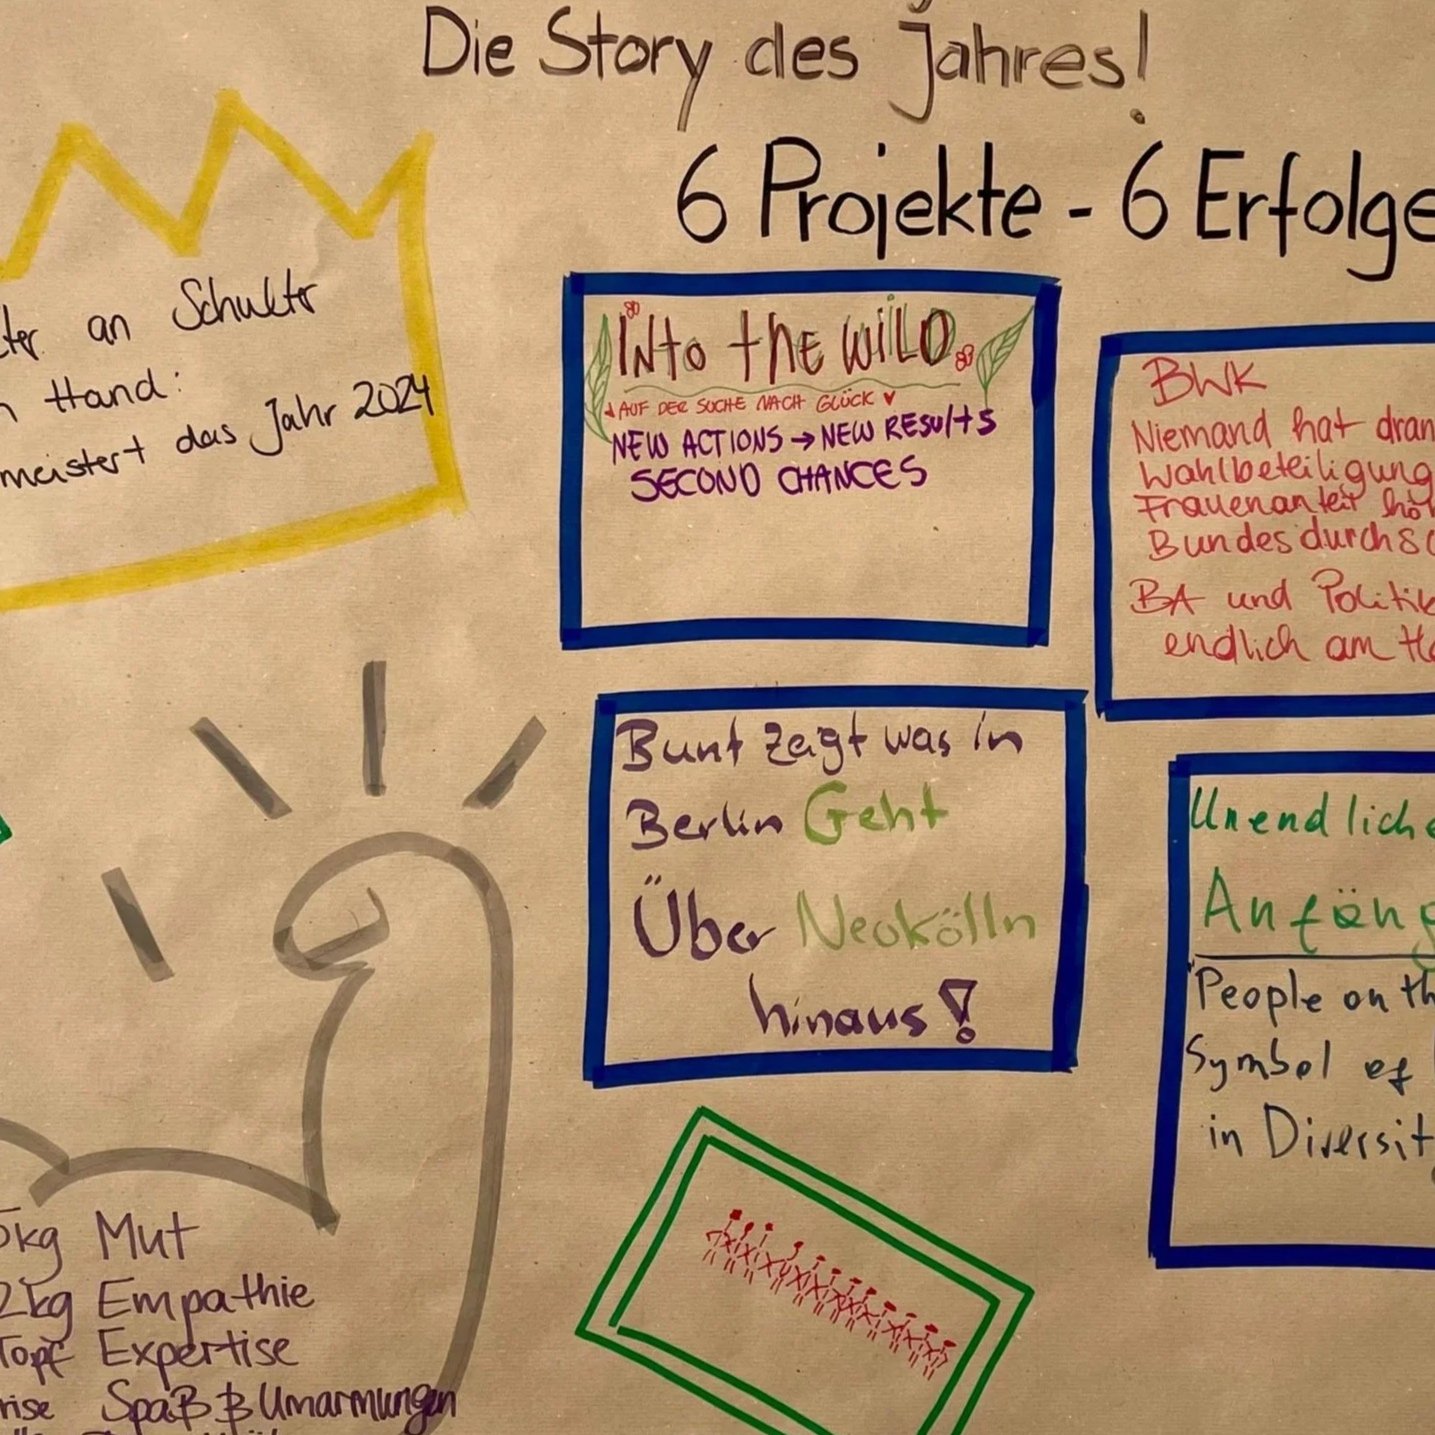 Die Story des Jahres!
6 Projekte - 6 Erfolge
an Schulter
Hand:
meistert das Jahr 2024
INto the WiLD
AUF DER SUCHE NACH GLÜCK ♥
NEW ACTIONS → NEW RESULTS
SECOND CHANCES
BWK
Niemand hat dran
Wahlbeteiligung
Frauenanteil
Bundesdurchsc
BA und Politik
endlich am
Bunt zeigt was in
Berlin Geht
Über Neukölln
hinaus!
Unendliche
Anfäng
"People on th
Symbol of
in Diversit
kg Mut
2kg Empathie
Topf Expertise
rise Spaß & Umarmungen